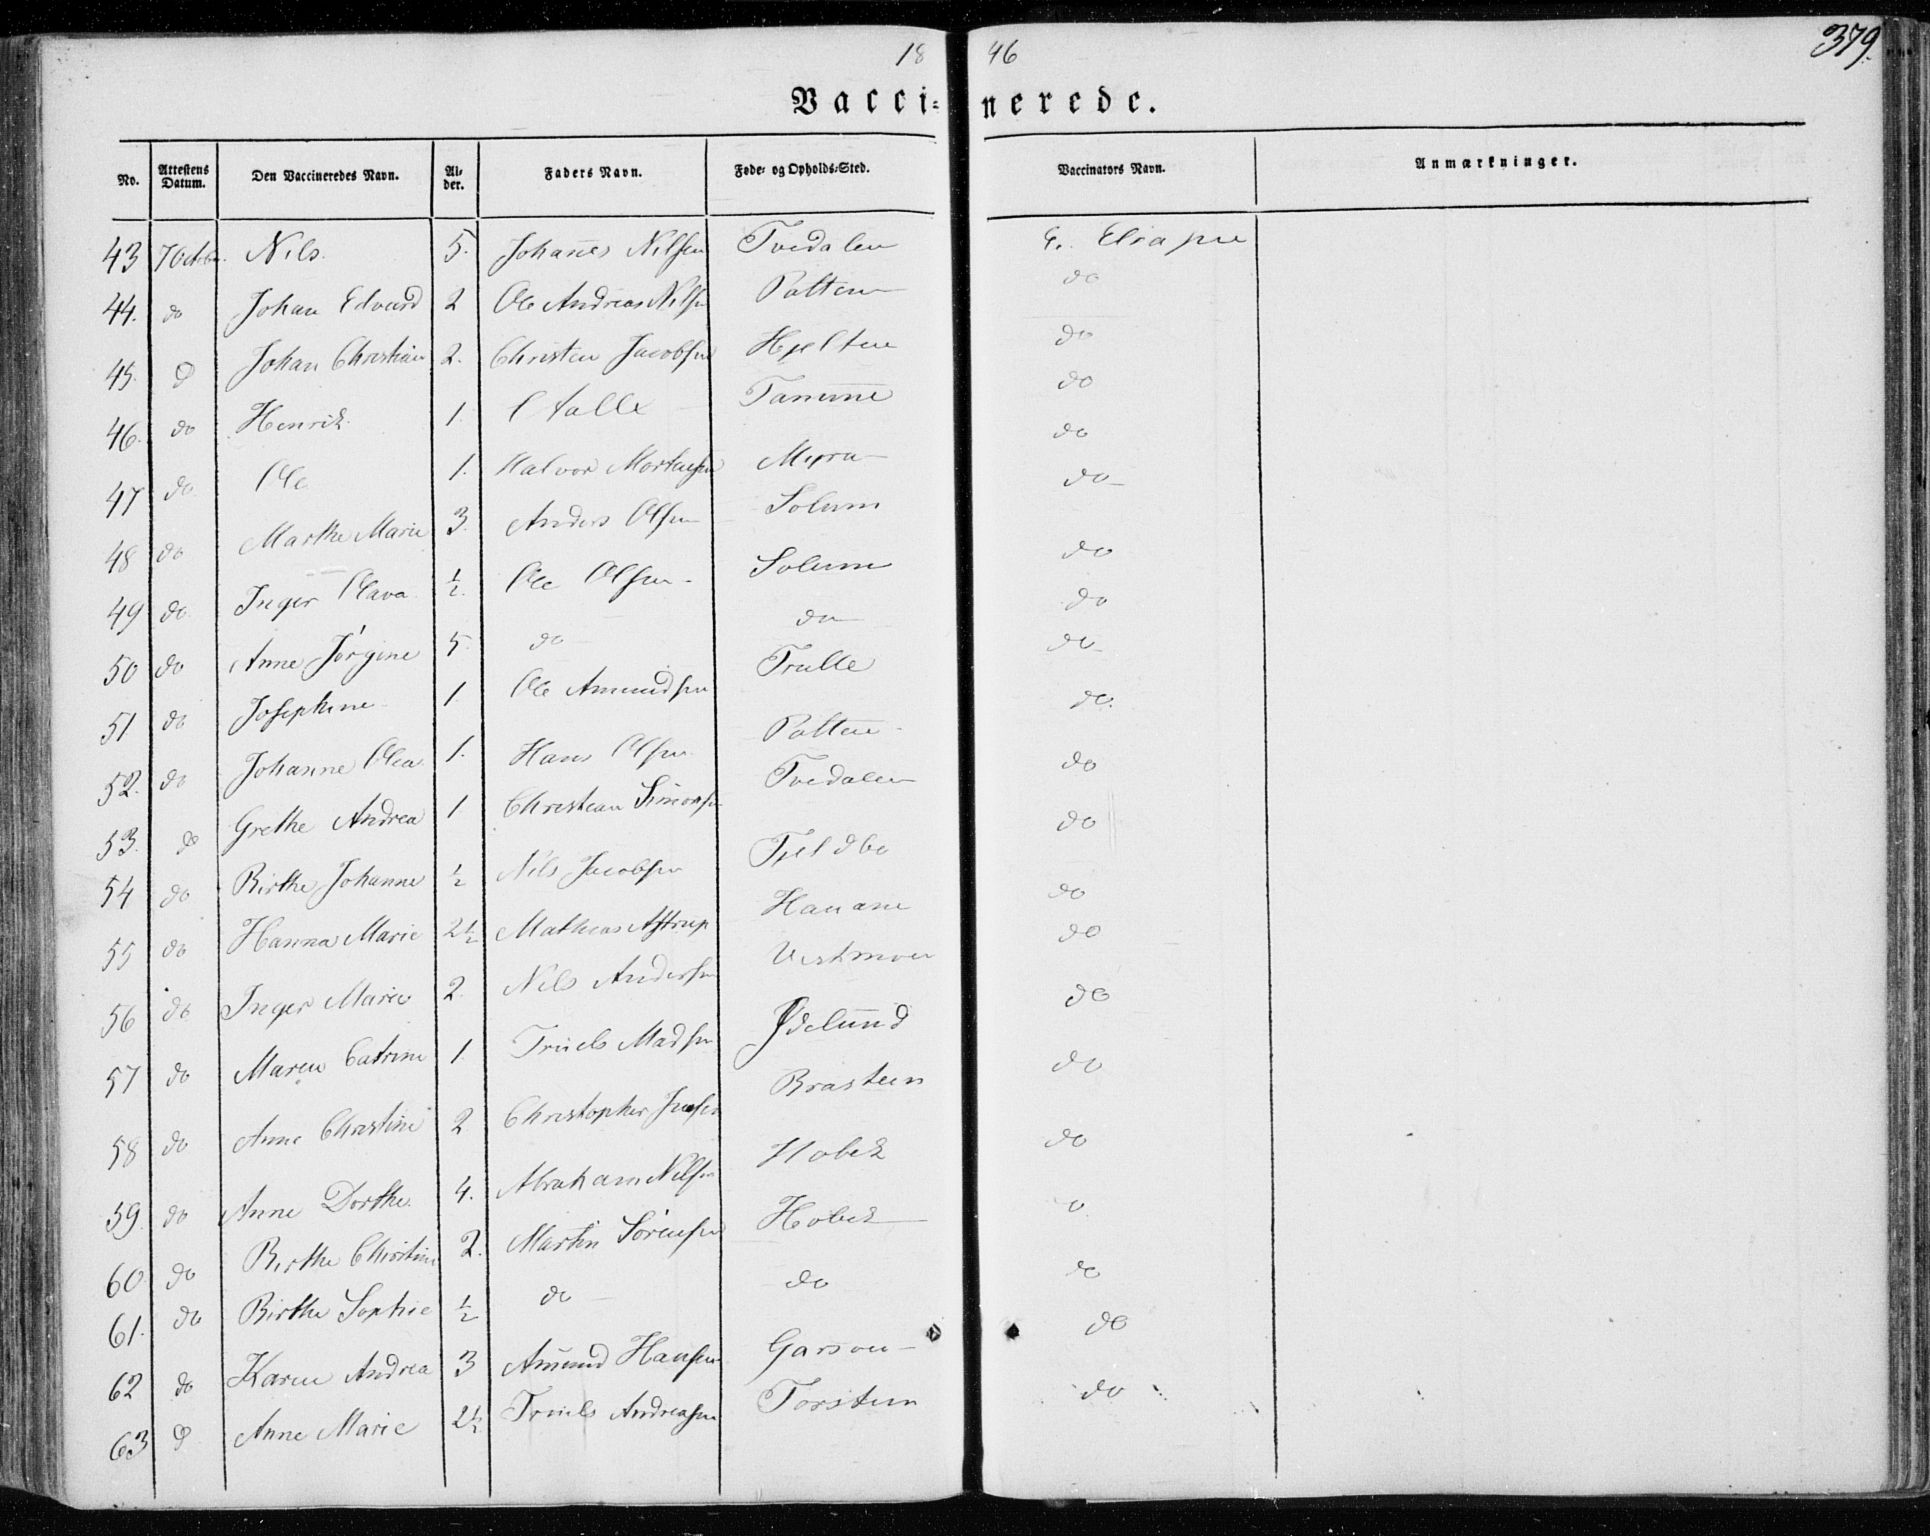 1846
379.
Vaccinerede.
No. Attestens Datum. Den Vaccineredes Navn. Alder. Faders Navn. Føde- og Opholds-Sted. Vaccinators Navn. Anmærkninger.
43 7 Octbr. Nils. 5. Johanes Nilsen Tvedalen
44. do Johan Edvard 2 Ole Andreas Nilsen Polten do
45. do Johan Christian 2. Christen Jacobsen Hjelten do
46. do Henrik 1. do
47 do Ole 1. Halvor Mortensen Myra do
48 do Marthe Marie 3. Anders Olsen Solum do
49 do Inger Olava ½. Ole Olsen Solum do
50 do Anne Jørgine 5. do do do
51 do Josephine 1. Ole Amundsen do
52. do Johanne Olea 1. Hans Olsen Polten do.
53. do Grethe Andrea 1 Christian Simonsen Tvedalen do
54 do Birthe Johanne ½ Nils Jacobsen do
55 do Hanna Marie 2½ Mathias Astrup Hauane do
56 do Inger Marie 2. Nils Andersen Vestmoen do
57 do Maren Catrine 1. Truels Madsen Ødelund do
58 do Anne Christine 2 Christopher Brasteen do
59 do Anne Dorthe. 4. Abraham Nilsen Hobek do
60 do Birthe Christine 2. Martin Sørensen Hobek do
61. do Birthe Sophie ½ do do do
62 do Karen Andrea 3 Amund Hansen do
63 do Anne Marie 2½ Truels Andreasen Torsteen do